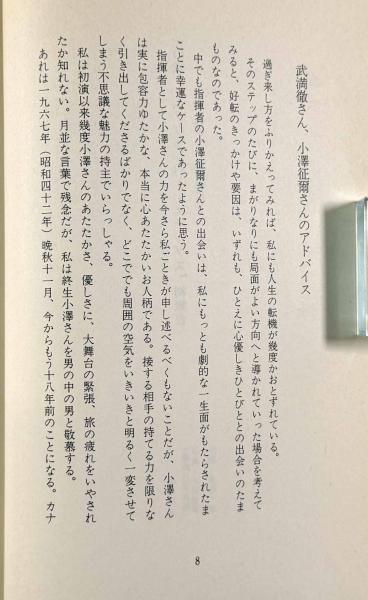 武満徹さん、小澤征爾さんのアドバイス
過ぎ来し方をふりかえってみれば、私にも人生の転機が幾度かおとずれている。
そのステップのたびに、まがりなりにも局面がよい方向へと導かれていった場合を考えて
みると、好転のきっかけや要因は、いずれも、ひとえに心優しきひとびととの出会いのたま
ものなのであった。
中でも指揮者の小澤征爾さんとの出会いは、私にもっとも劇的な一生面がもたらされたま
ことに幸運なケースであったように思う。
指揮者として小澤さんの力を今さら私ごときが申し述べるべくもないことだが、小澤さん
は実に包容力ゆたかな、本当に心あたたかいお人柄である。接する相手の持てる力を限りな
く引き出してくださるばかりでなく、どこででも周囲の空気をいきいきと明るく一変させて
しまう不思議な魅力の持主でいらっしゃる。
私は初演以来幾度小澤さんのあたたかさ、優しさに、大舞台の緊張、旅の疲れをいやされ
たか知れない。月並な言葉で残念だが、私は終生小澤さんを男の中の男と敬慕する。
あれは一九六七年（昭和四十二年）晩秋十一月、今からもう十八年前のことになる。カナ
8